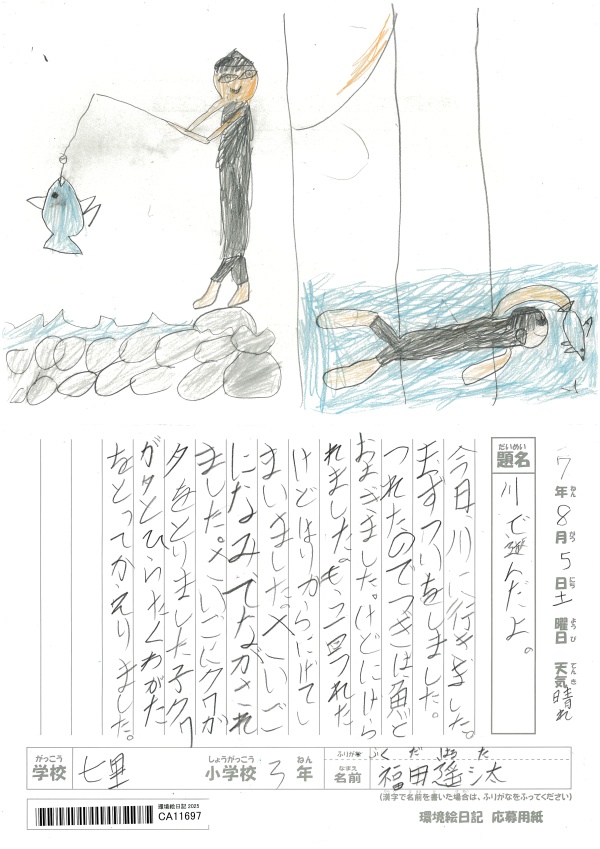 7年8月5日土曜日 天気晴れ
ねん がつ にち ようび てんき
だいめい
題名
川で遊んだよ。
今日、川に行きました。
まずつりをしました。
つれたのでつぎは魚と
およぎました。けどにげら
れました。もう二回つれた
けどはりからにげてし
まいました。さいご
になみでながされ
ました。さいごにクワが
タをとりました子クワ
ガタとひらたくわがた
をとってかえりました。
がっこう
学校
七里
しょうがっこう
小学校
3
ねん
年
ふりがな
ふくだ はるた
なまえ
名前
福田遥太
(漢字で名前を書いた場合は、ふりがなをふってください)
環境絵日記 2025
CA11697
環境絵日記 応募用紙